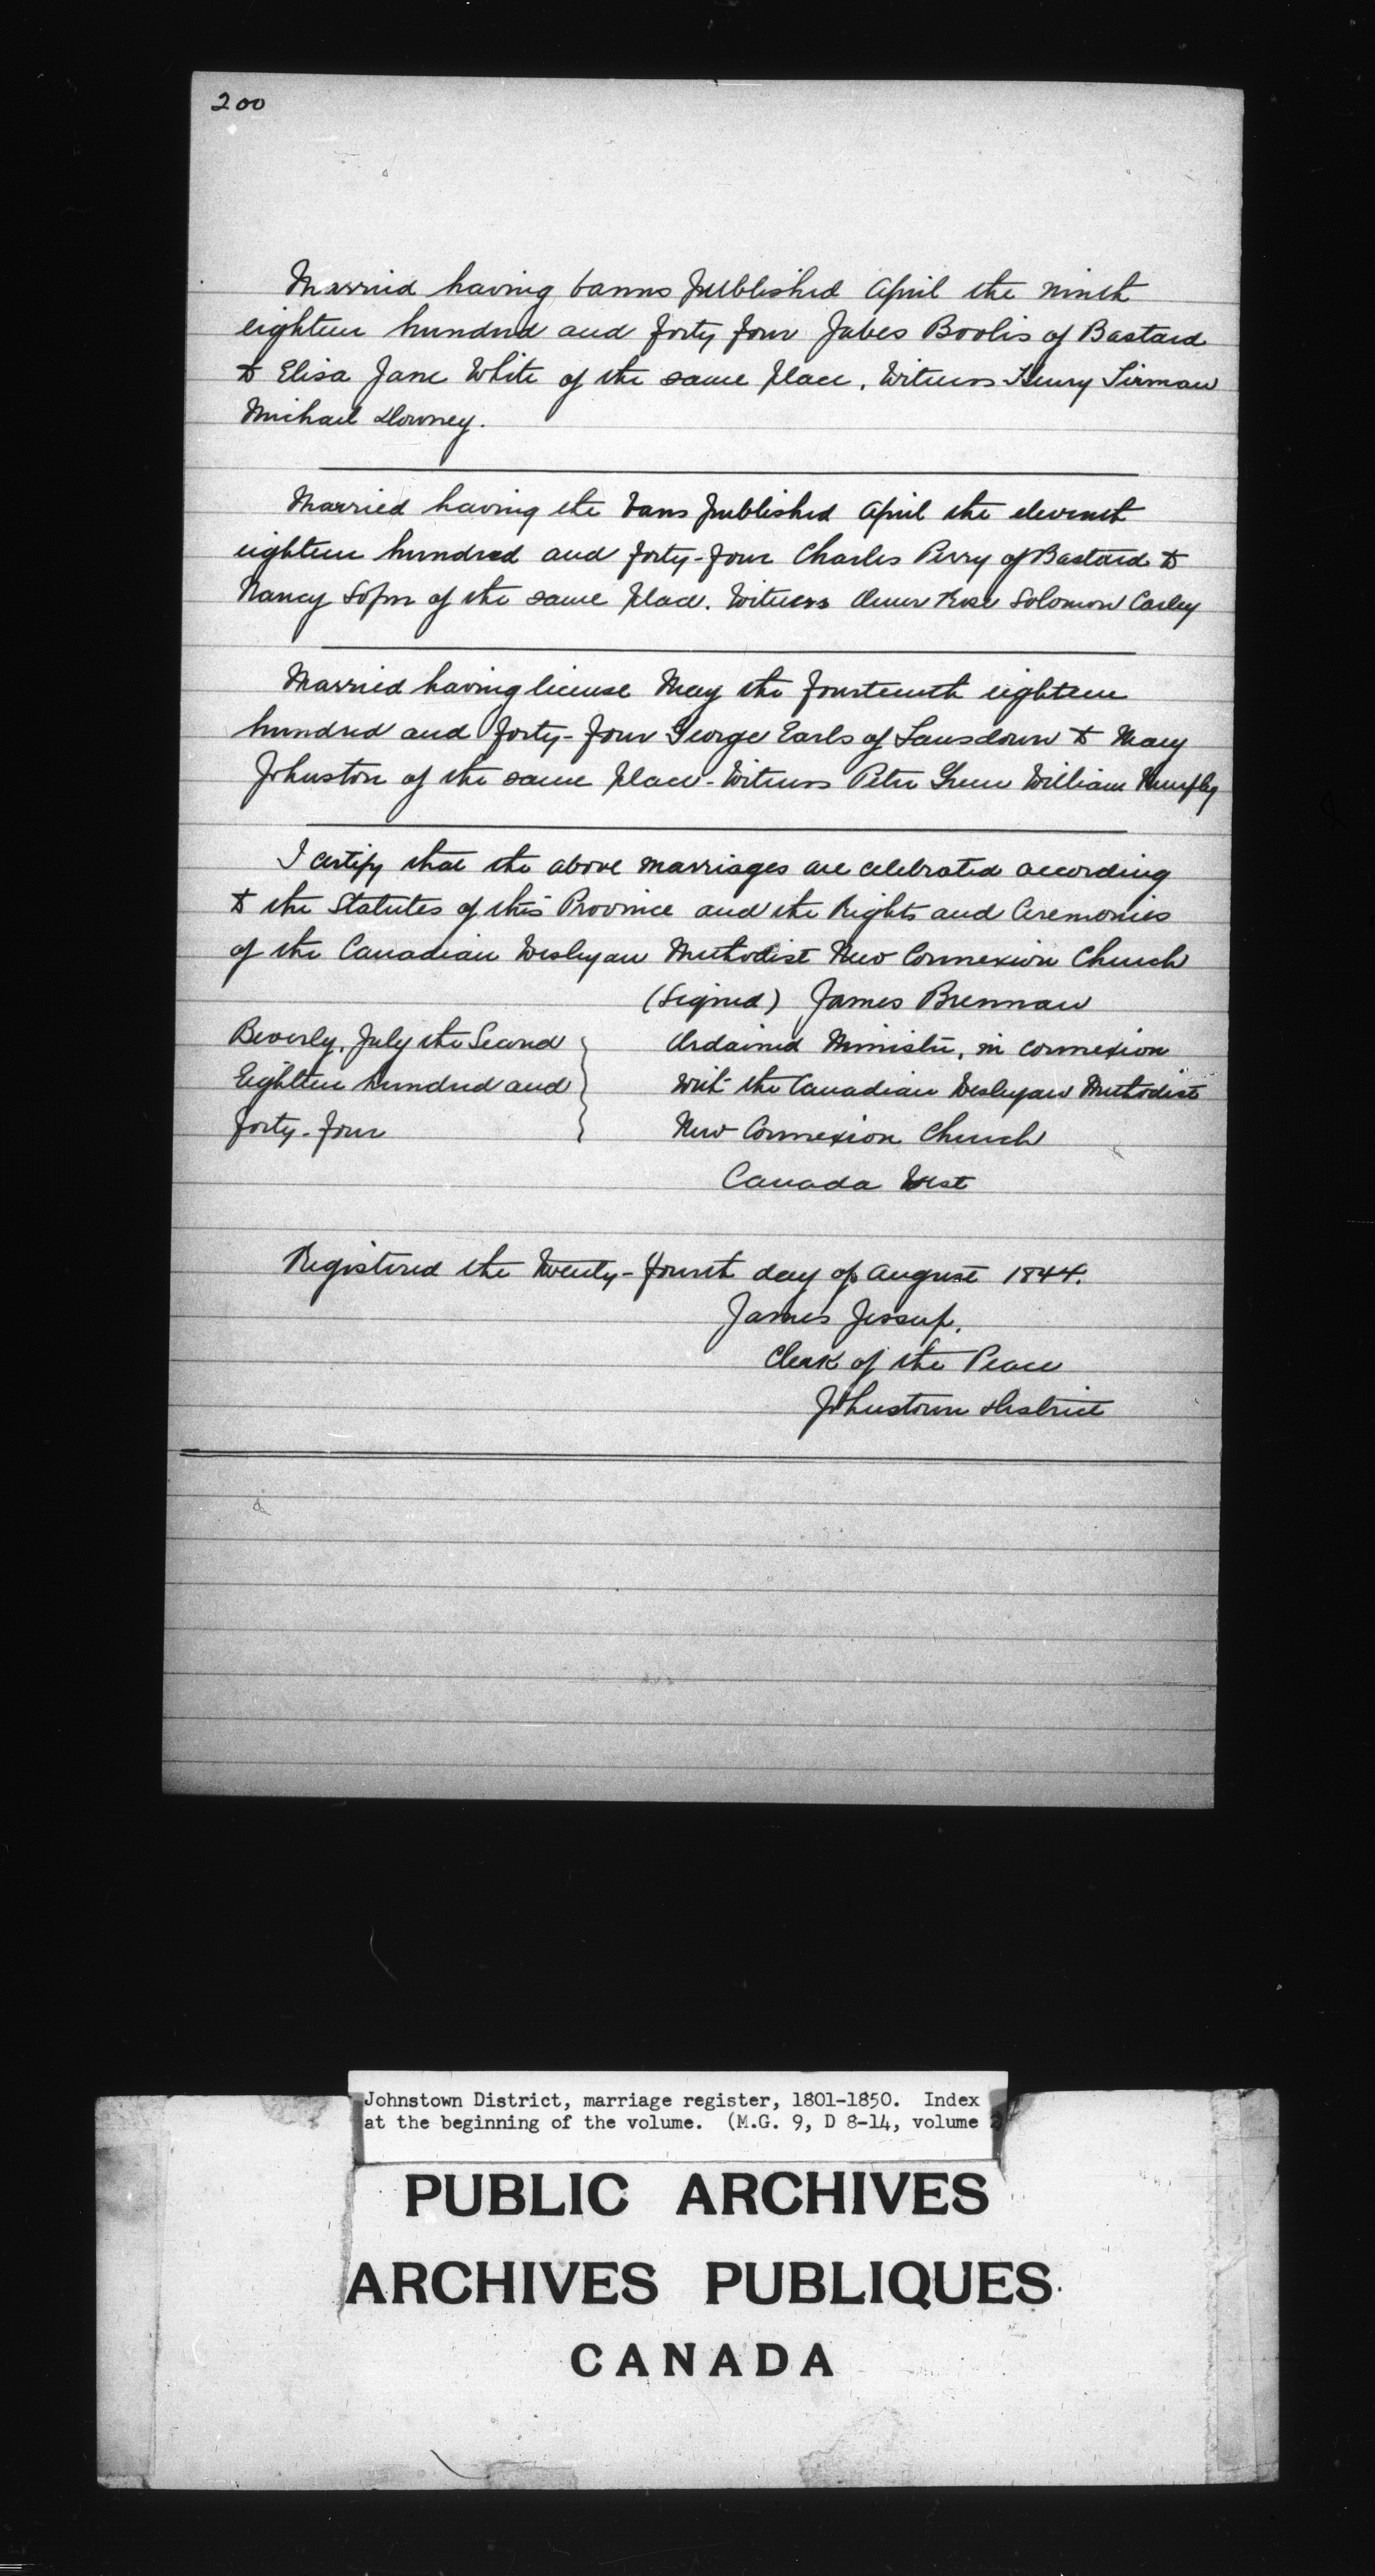 200
Married having banns published April the ninth
eighteen hundred and forty four Jabes Boolis of Bastard
to Elisa Jane White of the same place, Witness Henry Sirman
Michael Downey.
Married having the bans published April the eleventh
eighteen hundred and forty-four Charles Perry of Bastard to
Nancy of the same place. Witness Rose Solomon Carley
Married having license May the fourteenth eighteen
hundred and forty-four George Earls of Lansdown to Mary
Johnston of the same place - Witness Peter Green William
I certify that the above marriages are celebrated according
to the Statutes of this Province and the Rights and Ceremonies
of the Canadian Wesleyan Methodist New Connexion Church
(Signed) James Brennan
Beverly, July the Second
Eighteen hundred and
forty-four
Ordained Minister, in connexion
with the Canadian Wesleyan Methodist
New Connexion Church
Canada West
Registered the Twenty-fourth day of August 1844.
James Jessup,
Clerk of the Peace
Johnstown District
Johnstown District, marriage register, 1801-1850. Index
at the beginning of the volume. (M.G. 9, D 8-14, volume
PUBLIC ARCHIVES
ARCHIVES PUBLIQUES
CANADA